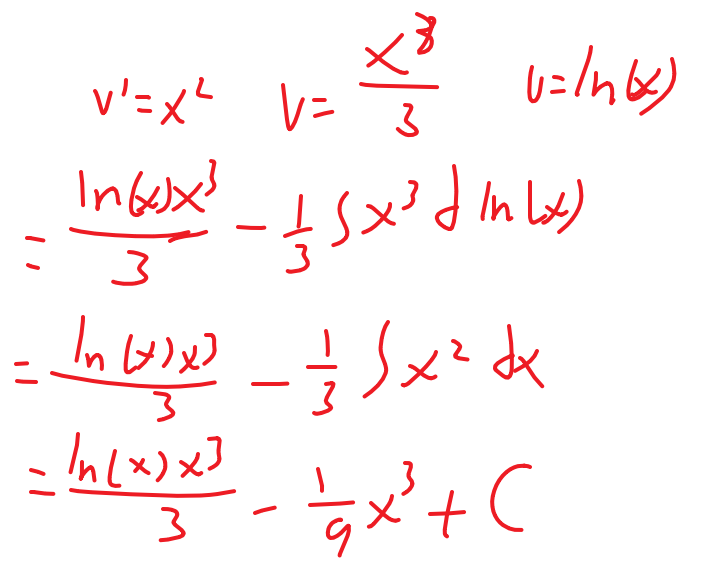 v' = x² v = x³/3 u = ln(x)
= ln(x)x³/3 - 1/3 ∫ x³ d ln(x)
= ln(x)x³/3 - 1/3 ∫ x² dx
= ln(x)x³/3 - 1/9 x³ + C